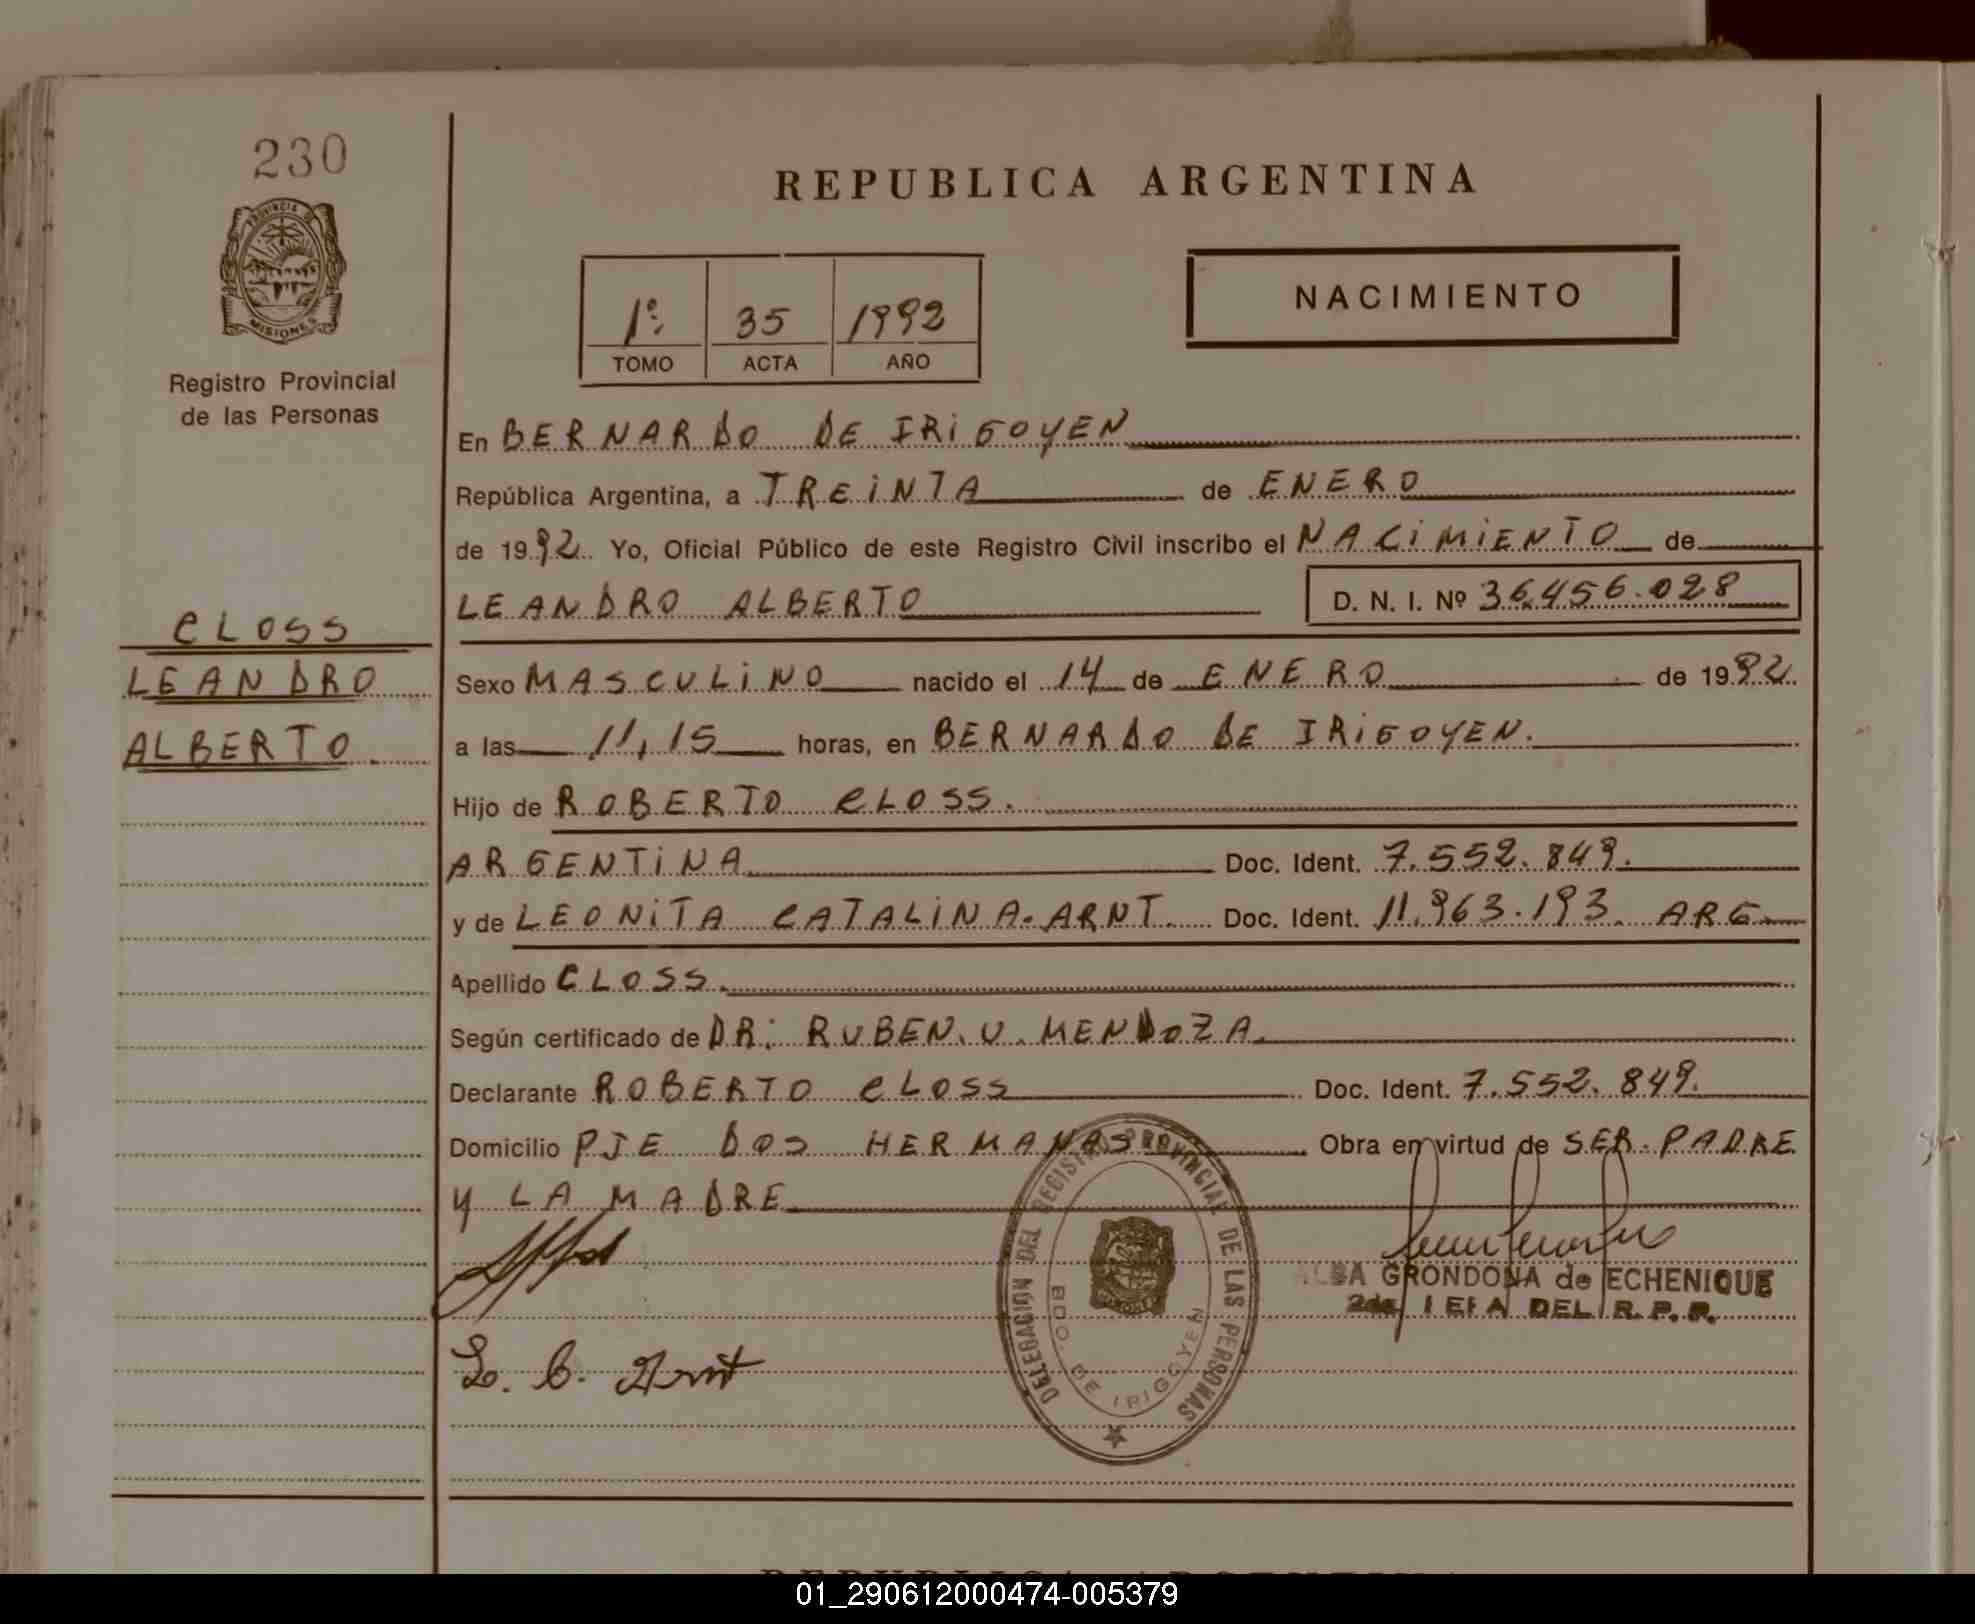 230
PROVINCIA DE
MISIONES
Registro Provincial
de las Personas
CLOSS
LEANDRO
ALBERTO
REPUBLICA ARGENTINA
1º 35 1992
TOMO ACTA AÑO
NACIMIENTO
En BERNARDO DE IRIGOYEN
República Argentina, a TREINTA de ENERO
de 1992 Yo, Oficial Público de este Registro Civil inscribo el NACIMIENTO de
LEANDRO ALBERTO D. N. I. Nº 36.456.028
Sexo MASCULINO nacido el 14 de ENERO de 1992
a las 11,15 horas, en BERNARDO DE IRIGOYEN.
Hijo de ROBERTO CLOSS.
ARGENTINA Doc. Ident. 7.552.849.
y de LEONITA CATALINA ARNT. Doc. Ident. 11.963.193. ARG
Apellido CLOSS.
Según certificado de DR: RUBEN. U. MENDOZA.
Declarante ROBERTO CLOSS Doc. Ident. 7.552.849.
Domicilio PJE DOS HERMANAS Obra en virtud de SER PADRE
Y LA MADRE
DELEGACION DEL REGISTRO PROVINCIAL DE LAS PERSONAS
BDO. DE IRIGOYEN
ALBA GRONDONA de ECHENIQUE
2da JEFA DEL R. P. P.
L. C. Arnt
01_290612000474-005379